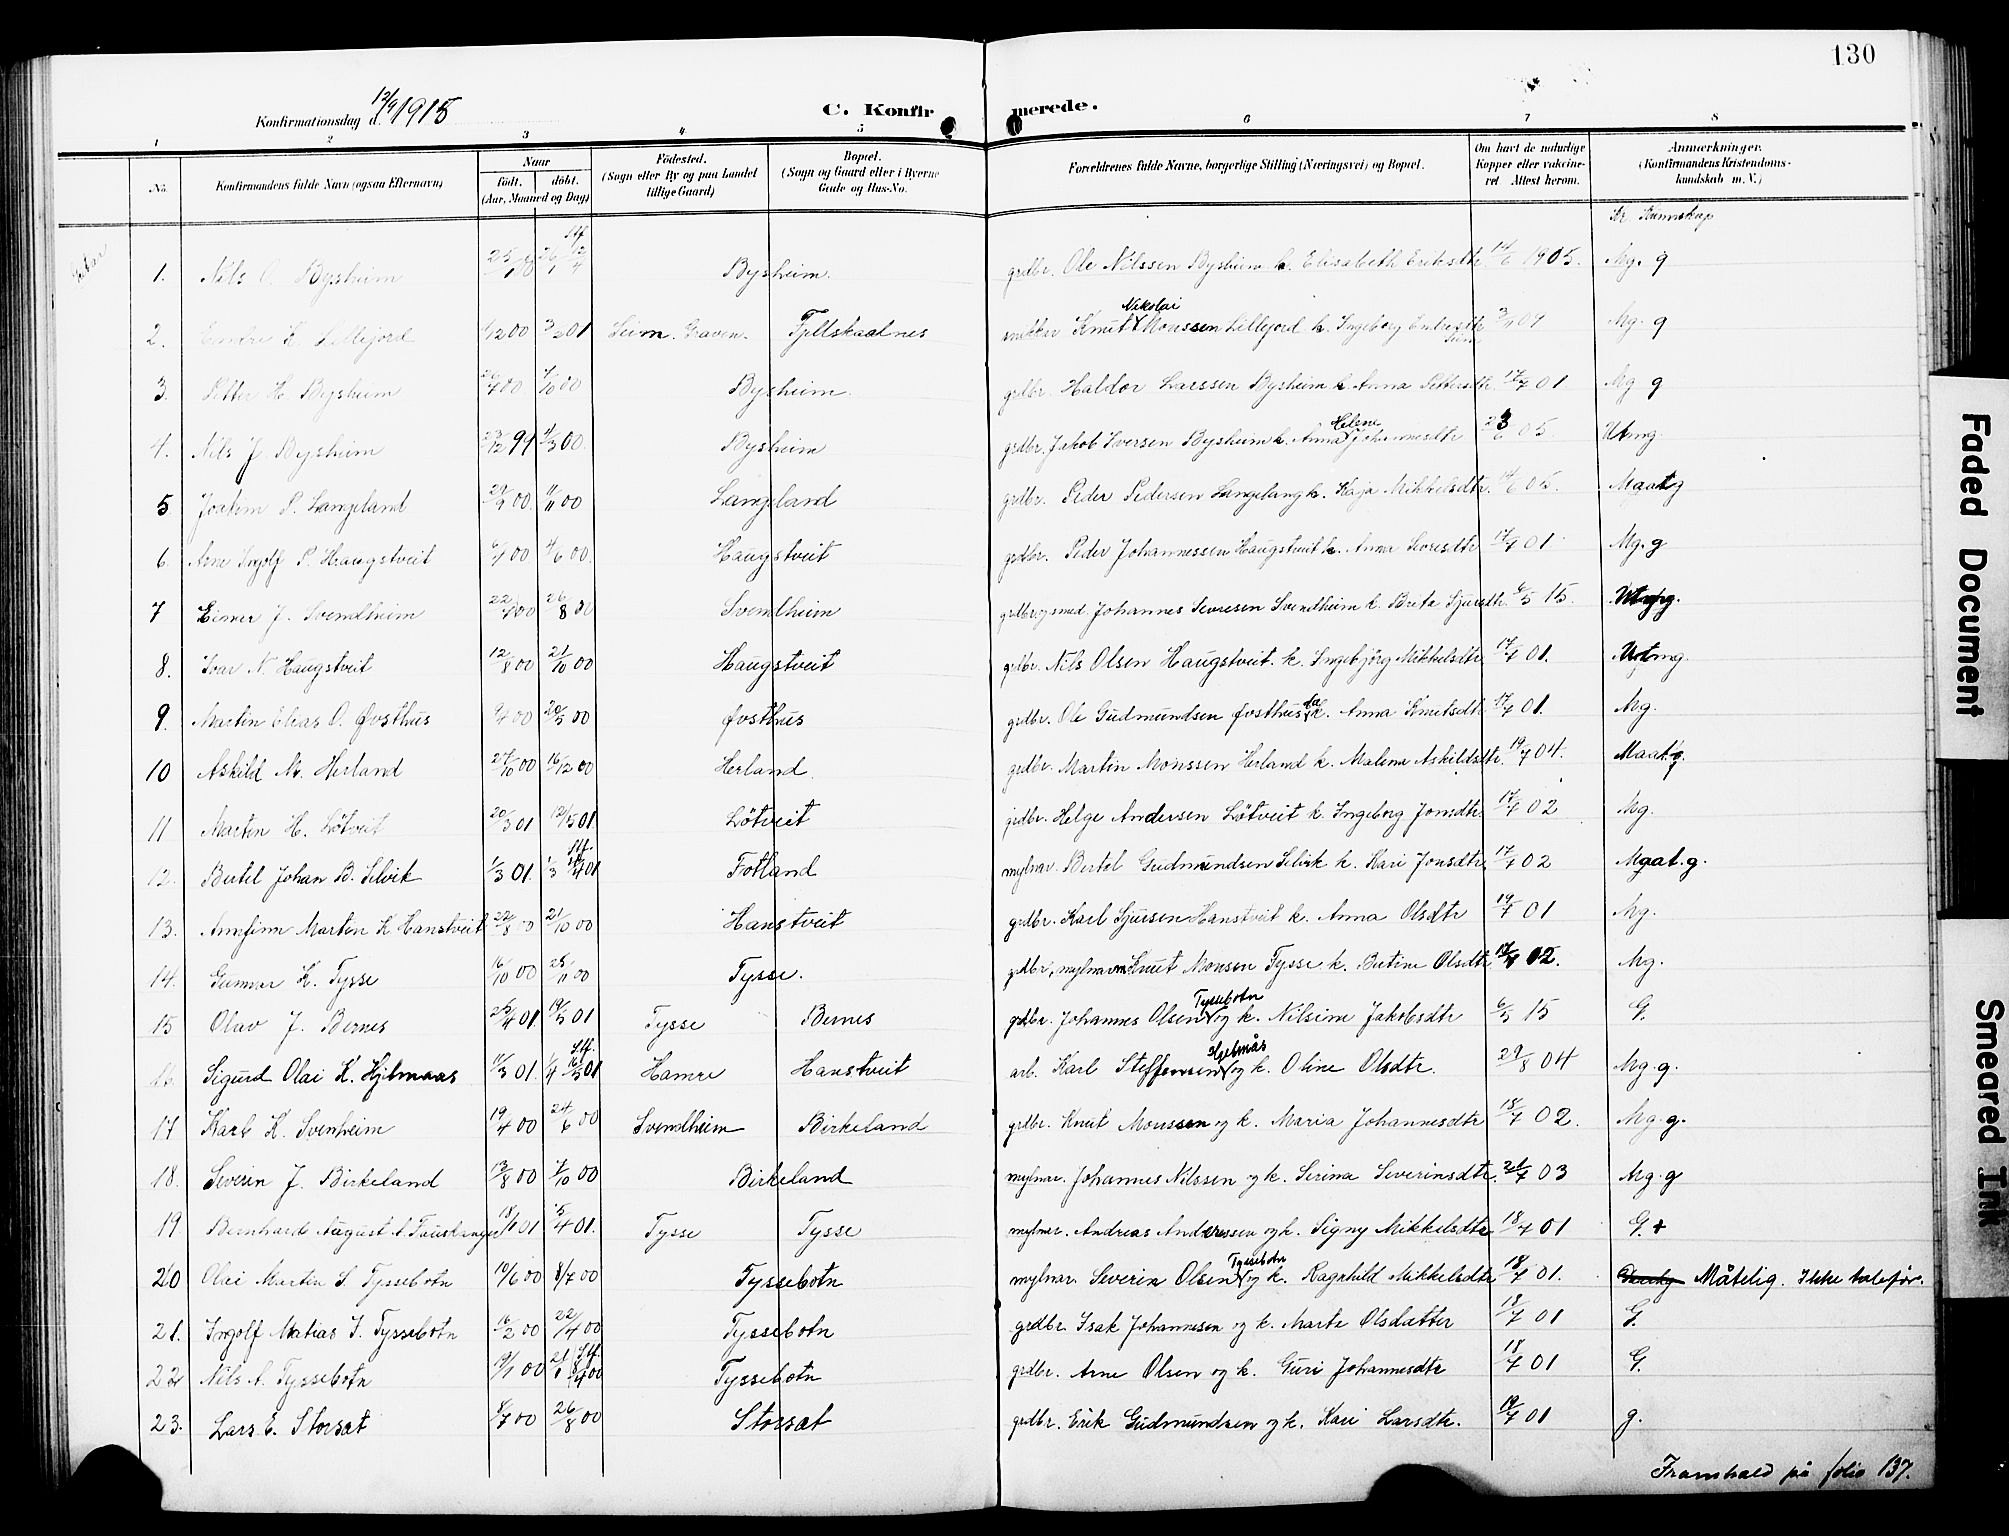 130
Konfirmationsdag d. 12/9 1915
C. Konfirmerede.
1 2 3 4 5 6 7 8
No.
Konfirmandens fulde Navn (ogsaa Efternavn)
Naar
født. døbt.
(Aar, Maaned og Dag)
Fødested.
(Sogn eller By og paa Landet
tillige Gaard)
Bopæl.
(Sogn og Gaard eller i Byerne
Gade og Hus-No.
Forældrenes fulde Navne, borgerlige Stilling (Næringsvei) og Bopæl.
Om havt de naturlige
Kopper eller vaccine-
ret Attest herom.
Anmærkninger.
(Konfirmandens Kristendoms-
kundskab m. V.)
Kr. Kunnskap
1. Nils O. Bysheim Bysheim. grdbr. Ole Nilssen Bysheim k. Elisabeth Eriksdtr 14/6 1905. Mg. g
2. Endre K. Lillejord 3/2 01 Seim. Graven. Fjellskaalnes snikkar Knut Nikolai Monssen Lillejord k. Ingeborg Endresdtr Seim Mg. g
3. Petter H. Bysheim Bysheim. grdbr. Haldor Larssen Bysheim k. Anna Pettersdtr. 17/7 01 Mg g
4. Nils J. Bysheim 4/3 00. Bysheim grdbr. Jakob Iversen Bysheim k. Anna Helene Johannesdtr 05 Utmg.
5 Joakim P. Langeland 00 Langeland grdbr. Peder Pedersen Langeland k. Kaja Mikkelsdtr. 14/6 05. Maat g
6. Arne Ingolf P. Haugstveit 4/6 00. Haugstveit grdbr. Peder Johannessen Haugstveit k. Anna Sevresdtr 17/7 01 Mg. g
7 Einar J. Svendheim 26/8 00 Svendheim grdbr. og smed. Johannes Sevresen Svendheim k. Brita Sjursdtr. 6/5 15.
8. Ivar N. Haugstveit 12/8 00 21/10 00 Haugstveit grdbr. Nils Olsen Haugstveit. k. Ingebjörg Mikkelsdtr 17/7 01. Utmg.
9. Martin Elias O. Øvsthus 9/4 00 20/5 00 Øvsthus grdbr. Ole Gudmundsen Øvsthus k. Anna Knutsdtr 17/7 01. Mg.
10 Askild M. Herland 27/10 00 16/12 00 Herland. grdbr. Martin Monssen Herland k. Malena Askildsdtr. 19/7 04. Maat. g.
11 Martin H. Lötveit 20/3 01 Lötveit grdbr. Helge Andersen Lötveit k. Ingeborg Jonsdtr. 17/7 02 Mg.
12. Bertel Johan B. Selvik 1/3 01. Stf. Fotland mylnar. Bertel Gudmundsen Selvik k. Kari Jonsdtr 17/7 02 Mgat. g.
13. Arnfinn Martin K. Hanstveit 22/8 00 21/10 00 Hanstveit grdbr. Karl Sjursen Hanstveit k. Anna Olsdtr 19/7 01 Mg.
14. Gunnar K. Tysse 16/10 00 25/11 00 Tysse. grdbr, mylnar Knut Monsen Tysse k. Butine Olsdtr 02. Mg.
15 Olav J. Bernes 25/4 01 19/5 01 Tysse Bernes grdbr. Johannes Olsen Tyssebotn og k. Nilsine Jakobsdtr 6/5 15 G.
16. Sigurd Olai K. Hjelmaas 11/3 01. Stf. Hamre Hanstveit arb. Karl Steffensen Hjelmås og k. Oline Olsdtr. 29/8 04 Mg. g.
17 Karl K. Svenheim 19/4 00 24/6 00 Svendheim Birkeland grdbr. Knut Monssen og k. Maria Johannesdtr 18/7 02. Mg. g.
18. Severin J. Birkeland 13/8 00 7/10 00 Birkeland mylnar. Johannes Nilssen og k. Serina Severinsdtr. 21/7 03 Mg. g
19 Bernhard August A. Fauskanger 5/4 01. Tysse Tysse mylnar. Andreas Anderssen og k. Signy Mikkelsdtr 18/7 01 G. +
20 Olai Martin S. Tyssebotn 10/6 00 8/7 00 Tyssebotn mylnar. Severin Olsen Tyssebotn og k. Ragnhild Mikkelsdtr 18/7 01. Måtelig. Ikke talefør.
21. Ingolf Matias I. Tyssebotn 16/2 00 22/4 00 Tyssebotn grdbr. Isak Johannesen og k. Marta Olsdatter 18/7 01 G.
22 Nils A. Tyssebotn 19/1 00 Stf. Tyssebotn grdbr. Arne Olsen og k. Guri Johannesdtr 18/7 01 G.
23. Lars E. Storsæt 8/7 00 26/8 00 Storsæt grdbr. Erik Gudmundsen og k. Kari Larsdtr. 19/7 01 g.
Framhald på folio 137.
Faded Document
Smeared Ink